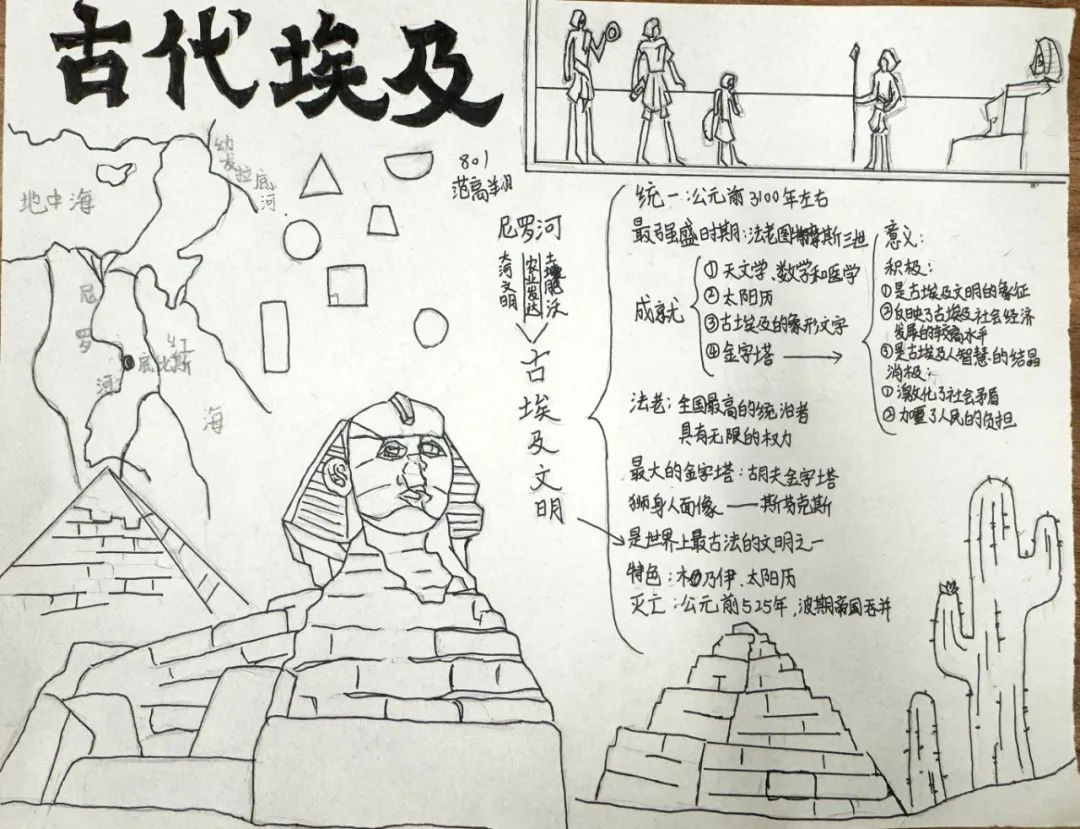 古代埃及
801
范高羊羽
幼发拉底河
地中海
尼罗河
底比斯
红
海
尼罗河
大河文明
农业发达
土壤肥沃
古埃及文明
统一:公元前3100年左右
最强盛时期:法老图特摩斯三世
成就
①天文学、数学和医学
②太阳历
③古埃及的象形文字
④金字塔
意义:
积极:
①是古埃及文明的象征
②反映了古埃及社会经济
发展的较高水平
③是古埃及人智慧的结晶
消极:
①激化了社会矛盾
②加重了人民的负担
法老:全国最高的统治者
具有无限的权力
最大的金字塔:胡夫金字塔
狮身人面像——斯芬克斯
是世界上最古法的文明之一
特色:木乃伊、太阳历
灭亡:公元前525年,波期帝国吞并